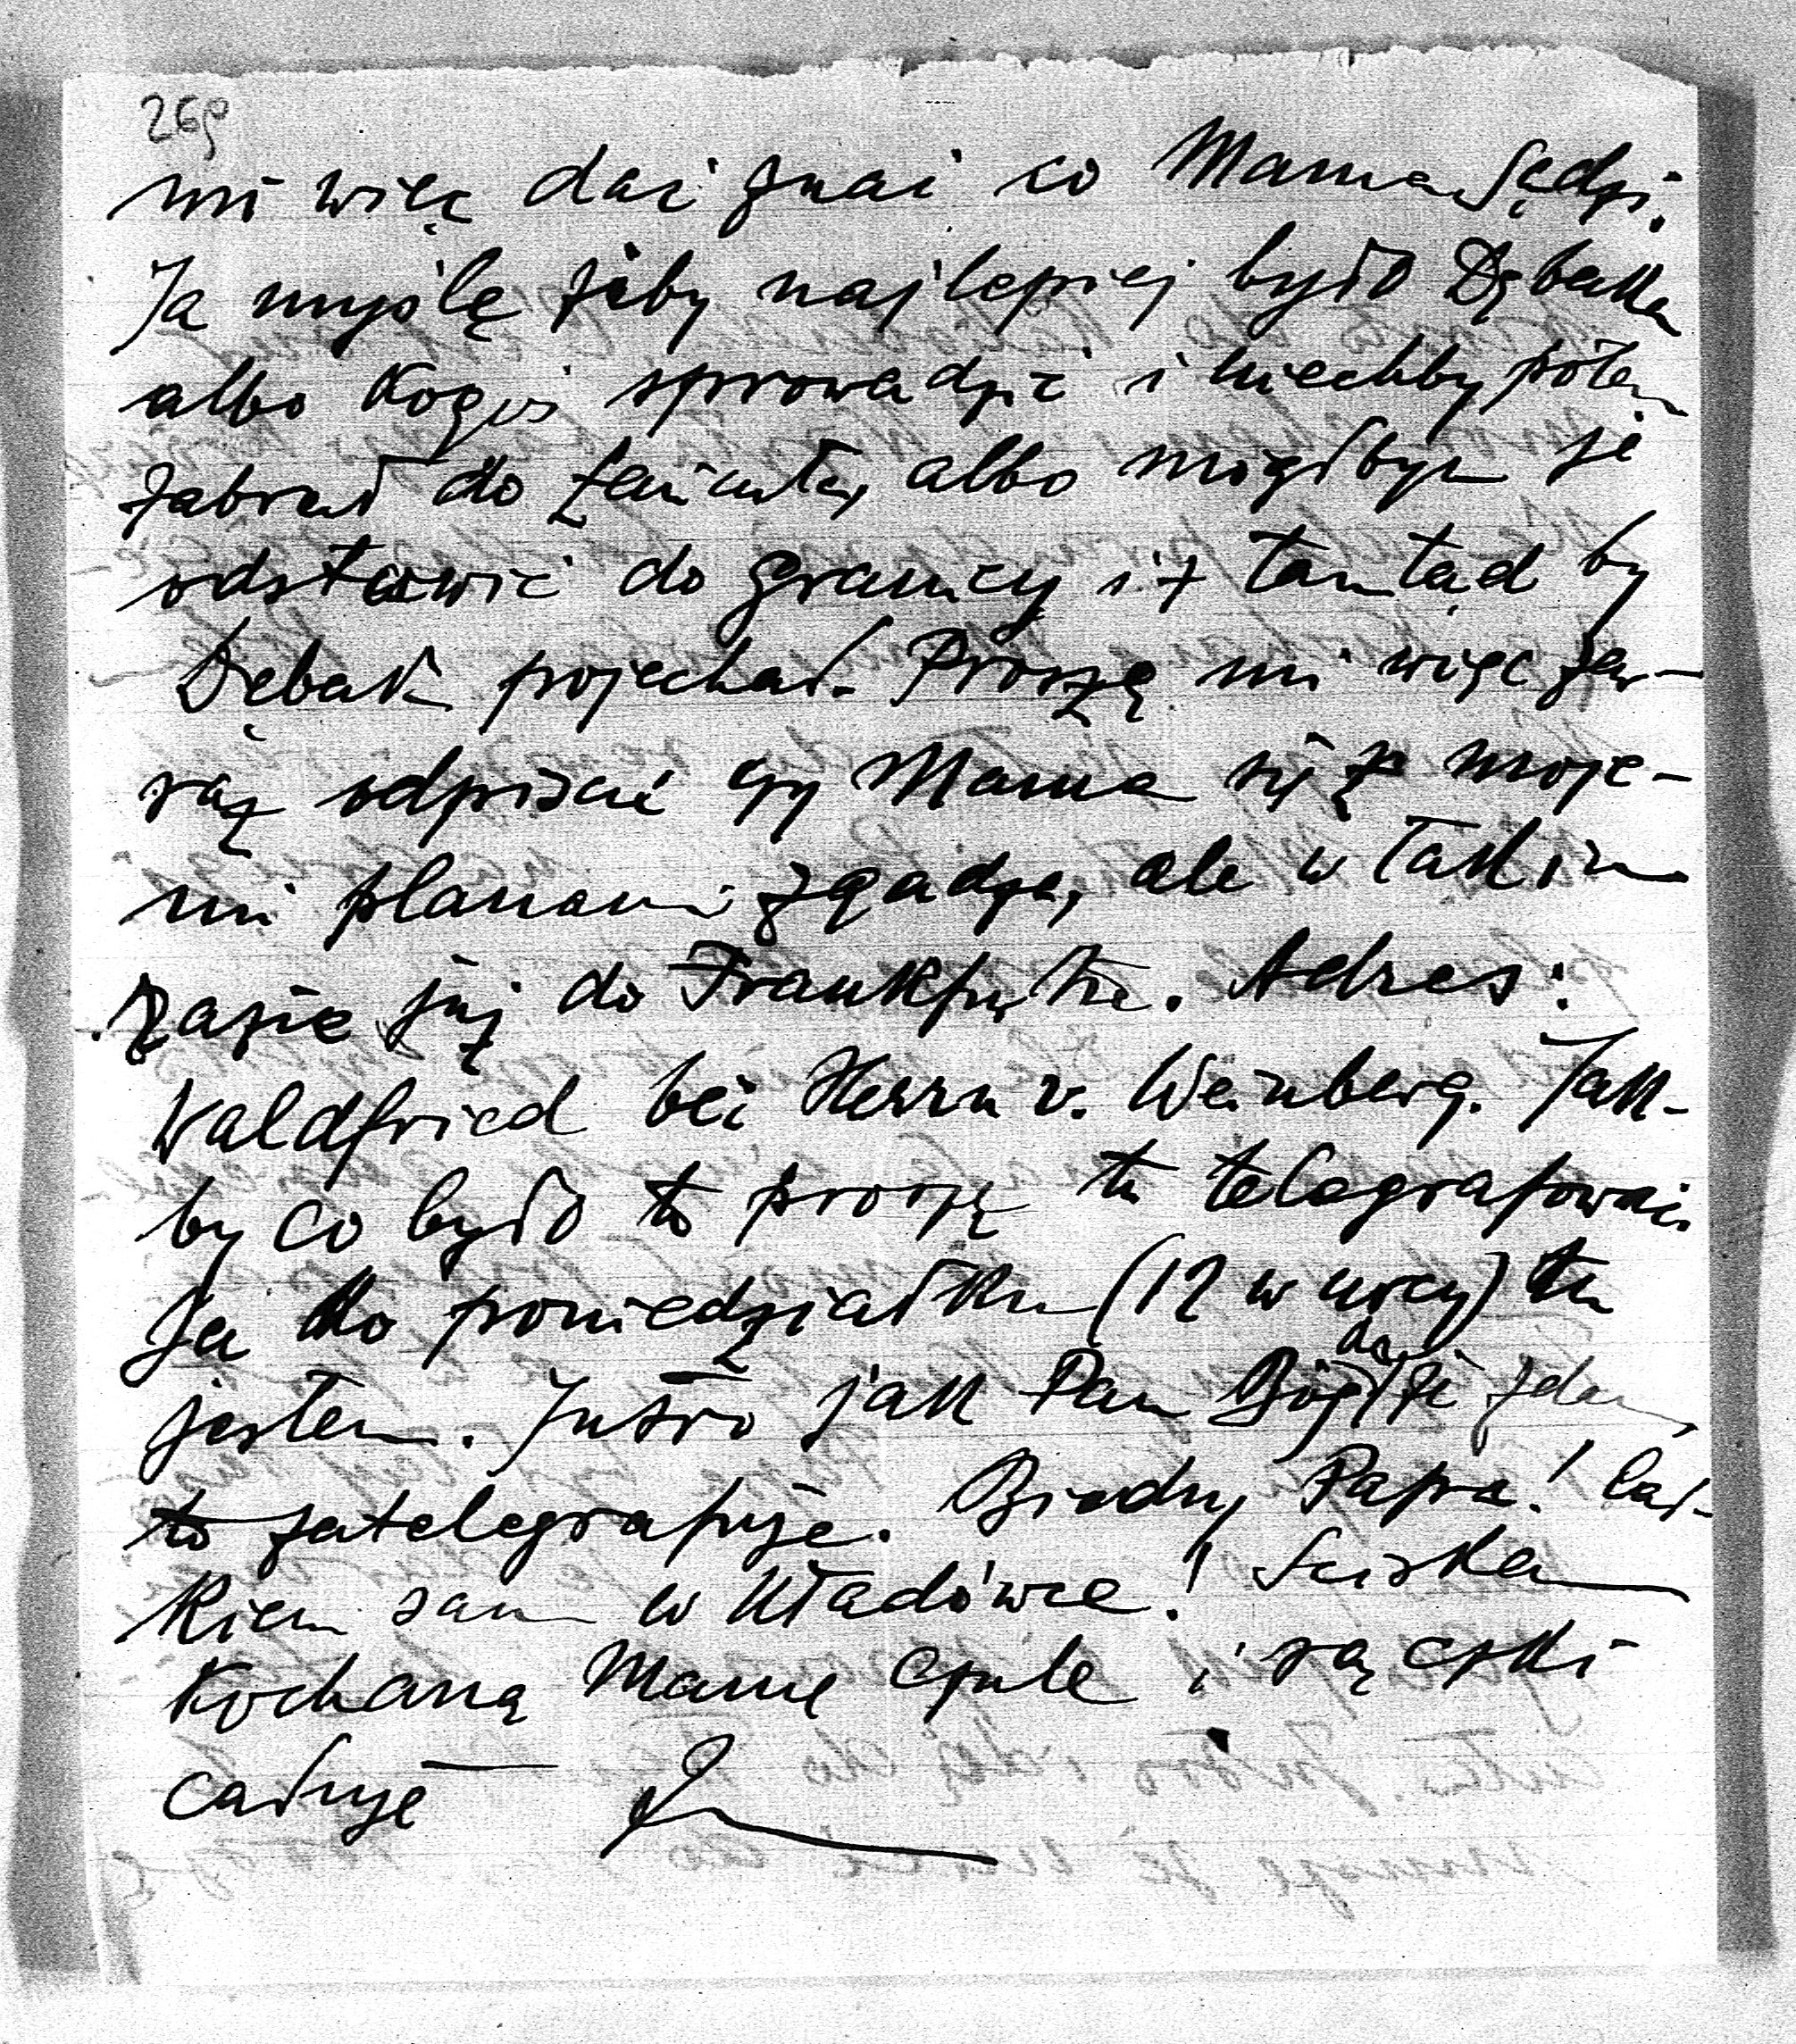 269
mi więc dać znać co Mama sędzi.
Ja myślę żeby najlepiej było Dębaka
albo kogoś sprowadzić i niechby potem
zabrał do Łańcuta, albo mógłbym je
odstawić do granicy i z tamtąd by
Dębak pojechał. Proszę mi więc za-
raz odpisać czy Mama się z moje-
mi planami zgadza, ale w takim
razie już do Frankfurtu. Adres:
Waldfried bei Herrn v. Weinberg. Jak-
by co było to proszę tu telegrafować
Ja do poniedziałku (12 w nocy) tu
jestem. Jutro jak Pan Bóg da że zdam,
to zatelegrafuję. Biedny Papa! Cał-
kiem sam w Kładówce! Sciskam
Kochaną Mamę czule i rączki
całuję